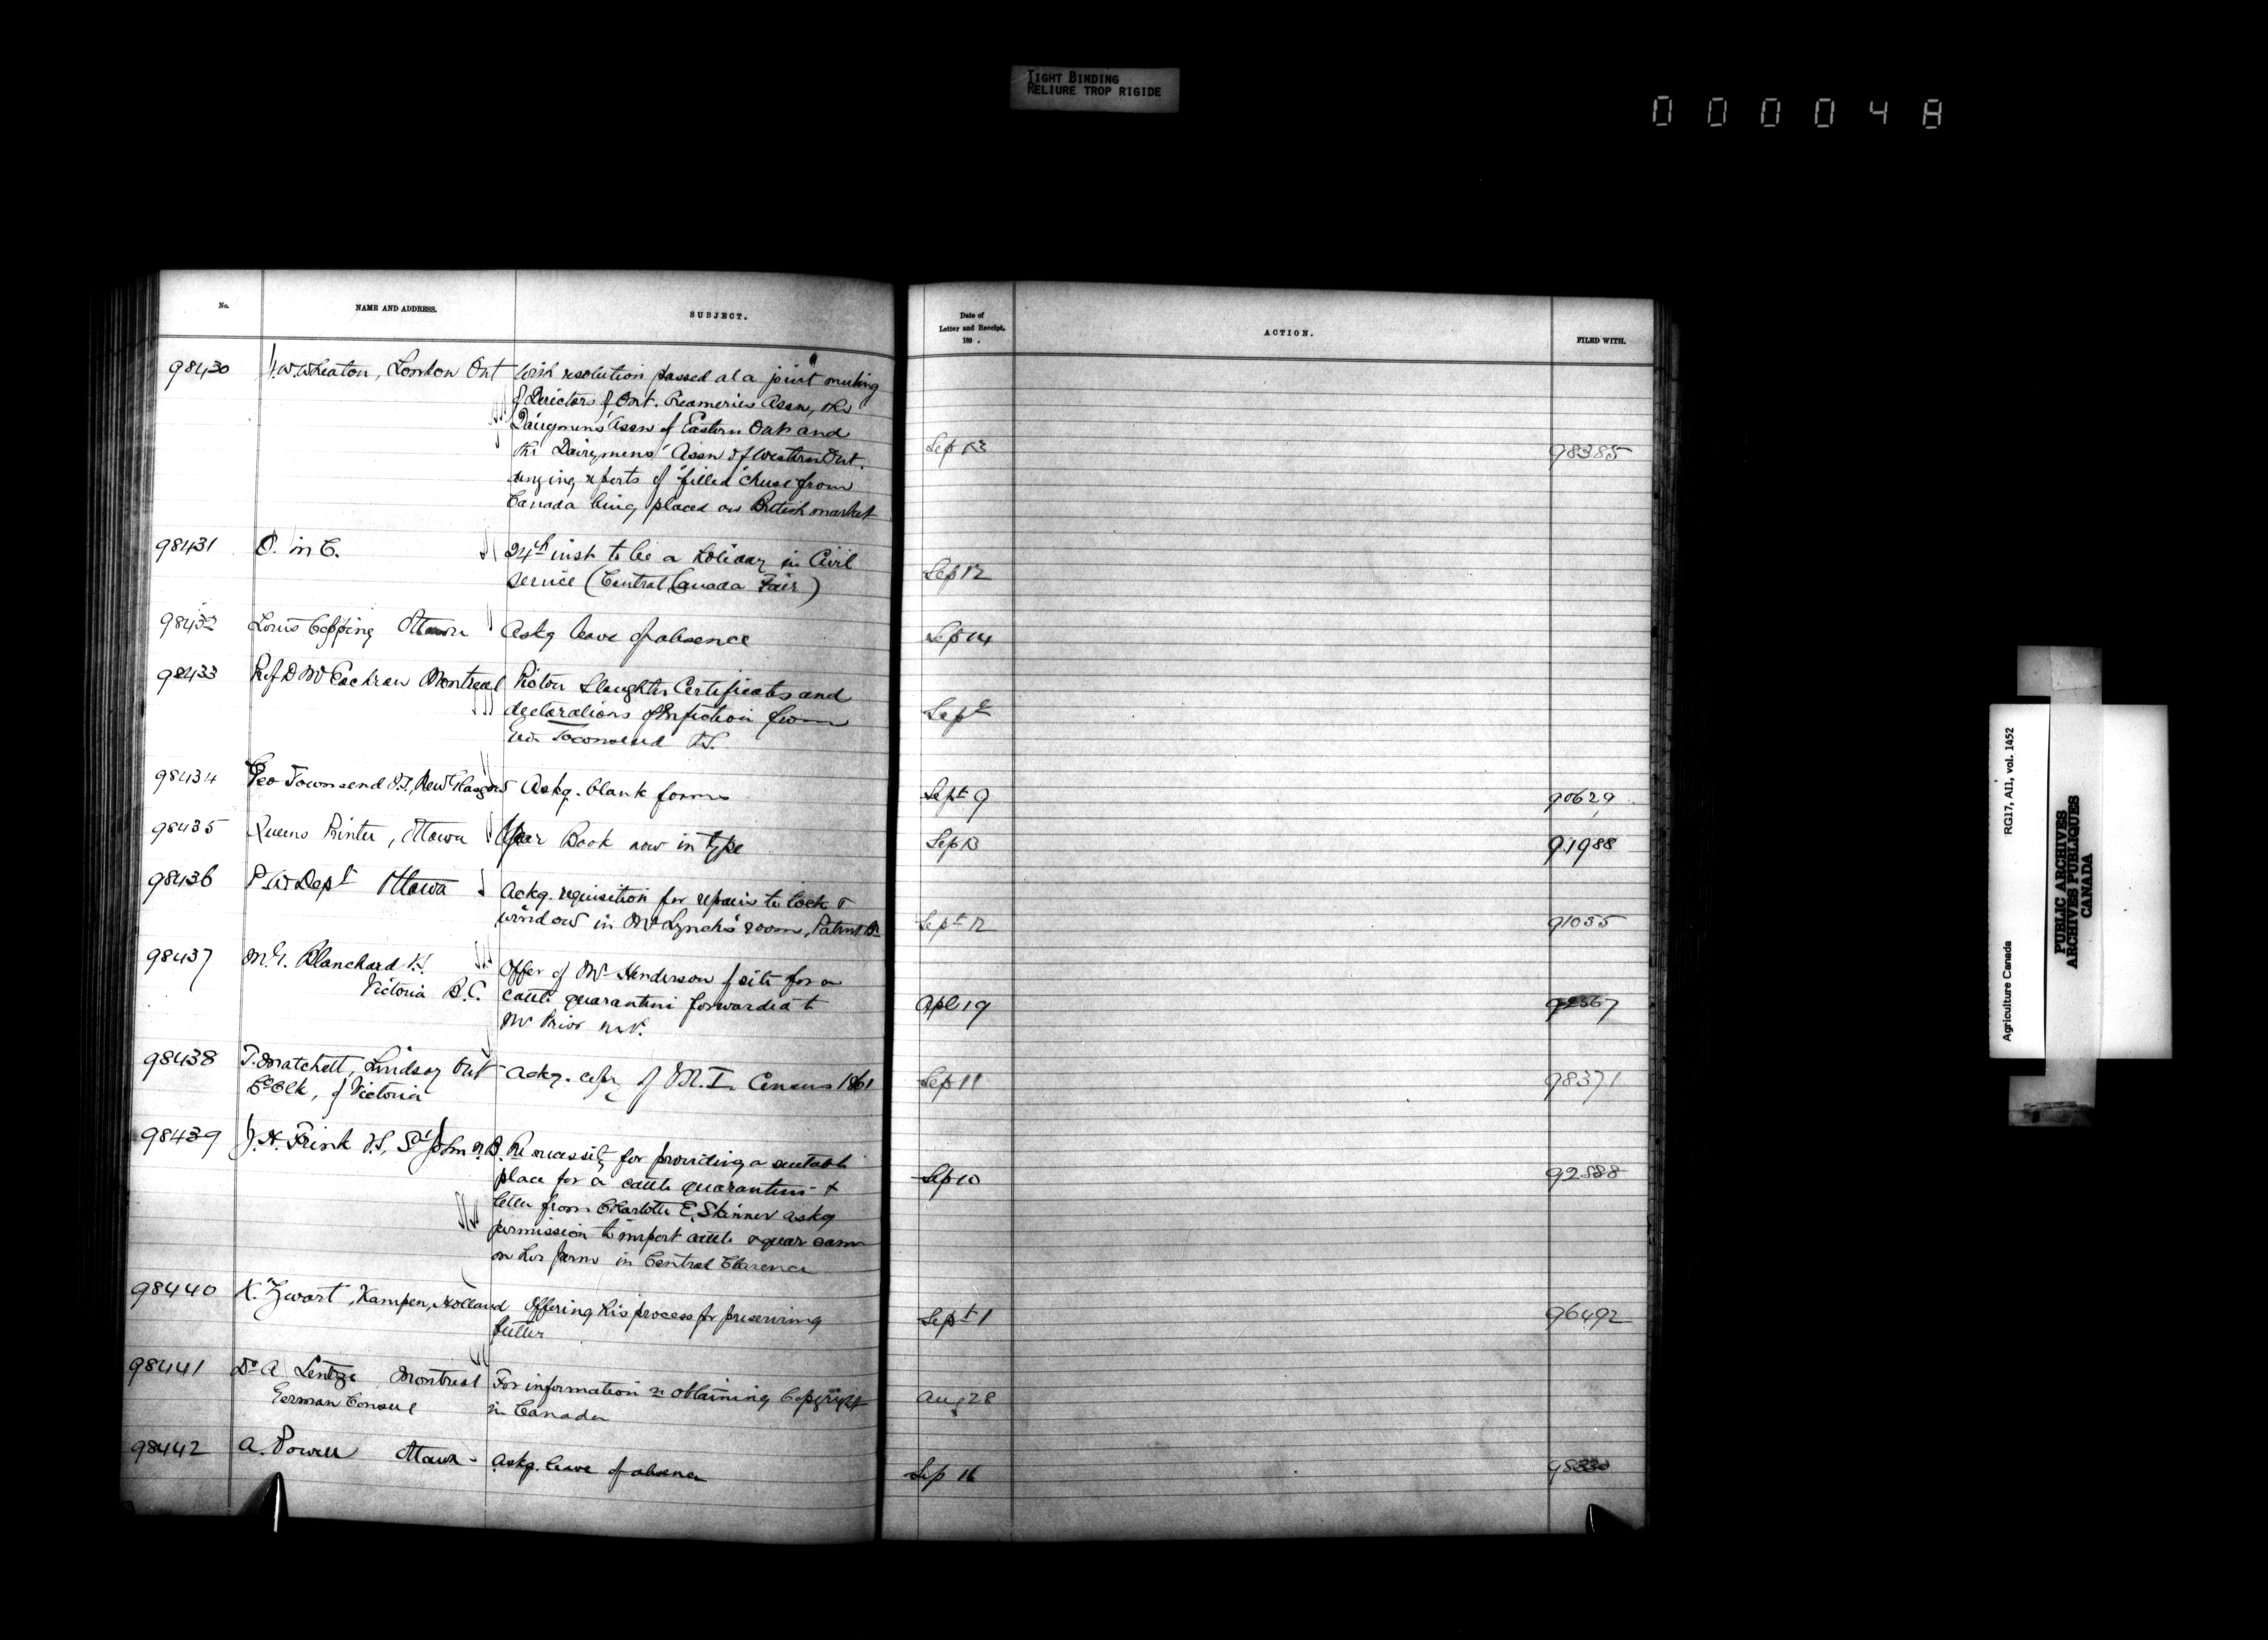 TIGHT BINDING
RELIURE TROP RIGIDE
000048
No.
NAME AND ADDRESS.
SUBJECT.
Date of
Letter and Receipt,
189 .
ACTION.
FILED WITH.
98430 J.W. Wheaton, London Ont With resolution passed at a joint meeting
of Directors of Ont. Creameries Assn, the
Dairymens' Assn of Eastern Ont and
the Dairymens' Assn of Western Ont.
denying reports of "filled" cheese from
Canada being placed on British market
Sep 13 98385
98431 O. in C. 24th inst to be a holiday in Civil
Service (Central Canada Fair)
Sep 12
98432 Louis Copping Ottawa Askg leave of absence
Sep 14
98433 Prof D McEachran Montreal Pictou Slaughter Certificates and
declarations of Infection from
Townsend V.S.
Sept
98434 Geo Townsend V.S., New Glasgow Askg. blank forms
Sept 9 90629
98435 Queens Printer, Ottawa Year Book now in type
Sep 13 91988
98436 P.W. Dept Ottawa Ackg. requisition for repairs to lock &
window in Mr Lynch's room, Patent Br
Sept 12 91055
98437 Blanchard
Victoria B.C.
Offer of Mr Henderson of site for a
cattle quarantine forwarded to
Mr Prior M.P.
Apl 19
98438 T. Matchett, Lindsay Ont Ackg. copy of M.I. Census 1861
Co Clk, of Victoria
Sep 11 98371
98439 J.H. Frink V.S., St John N.B. Re necessity for providing a suitable
place for a cattle quarantine &
letter from Charlotte E. Skinner askg
permission to import cattle & quar same
on her farm in Central Clarence
Sep 10
98440 K. Zwart, Kampen, Holland Offering his process for preserving
butter
Sept 1 96492
98441 Dr A Lentze Montreal For information re obtaining Copyright
German Consul in Canada
Aug 28
98442 A. Power Ottawa - Askg. leave of absence
Sep 16
Agriculture Canada RG17, AII1, vol. 1452
PUBLIC ARCHIVES
ARCHIVES PUBLIQUES
CANADA